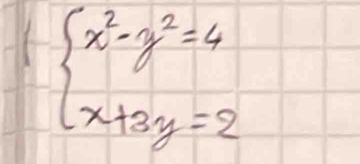 { x² - y² = 4
x + 3y = 2